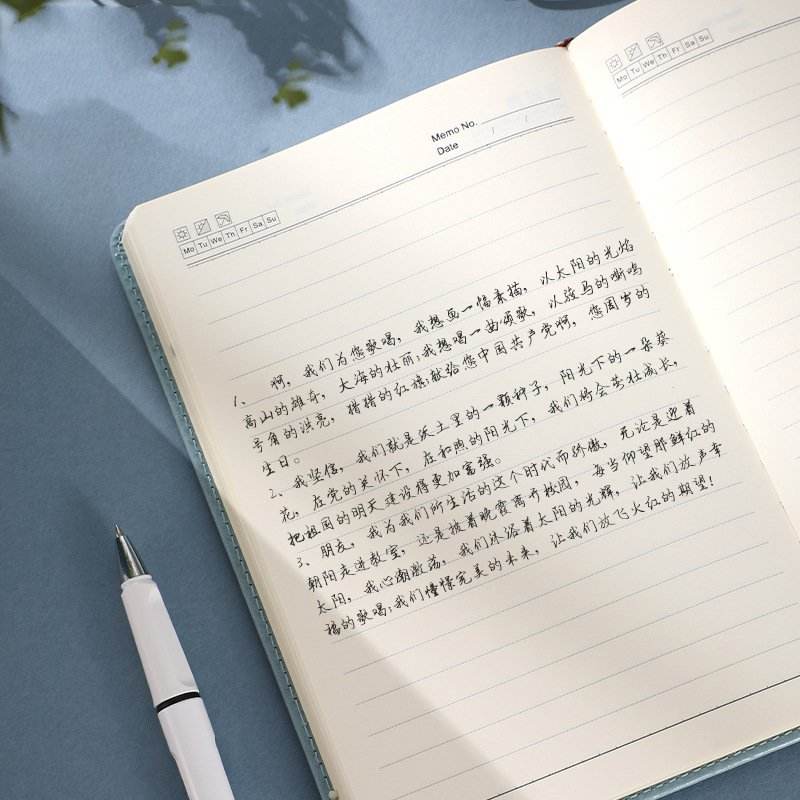 Memo No.
Date / /
Mo Tu We Th Fr Sa Su
1、 啊，我们为您歌唱，我想画一幅素描，以太阳的光焰
高山的雄奇，大海的壮丽；我想唱一曲颂歌，以骏马的嘶鸣
号角的洪亮，猎猎的红旗；献给您中国共产党啊，您周岁的
生日。
2、我坚信，我们就是沃土里的一颗种子，阳光下的一朵葵
花，在党的关怀下，在和煦的阳光下，我们将会茁壮成长，
把祖国的明天建设得更加富强。
3、朋友，我为我们所生活的这个时代而骄傲，无论是迎着
朝阳走进教室，还是披着晚霞离开校园，每当仰望那鲜红的
太阳，我心潮激荡，我们沐浴着太阳的光辉，让我们放声幸
福的歌唱；我们憧憬完美的未来，让我们放飞火红的期望！
Mo Tu We Th Fr Sa Su